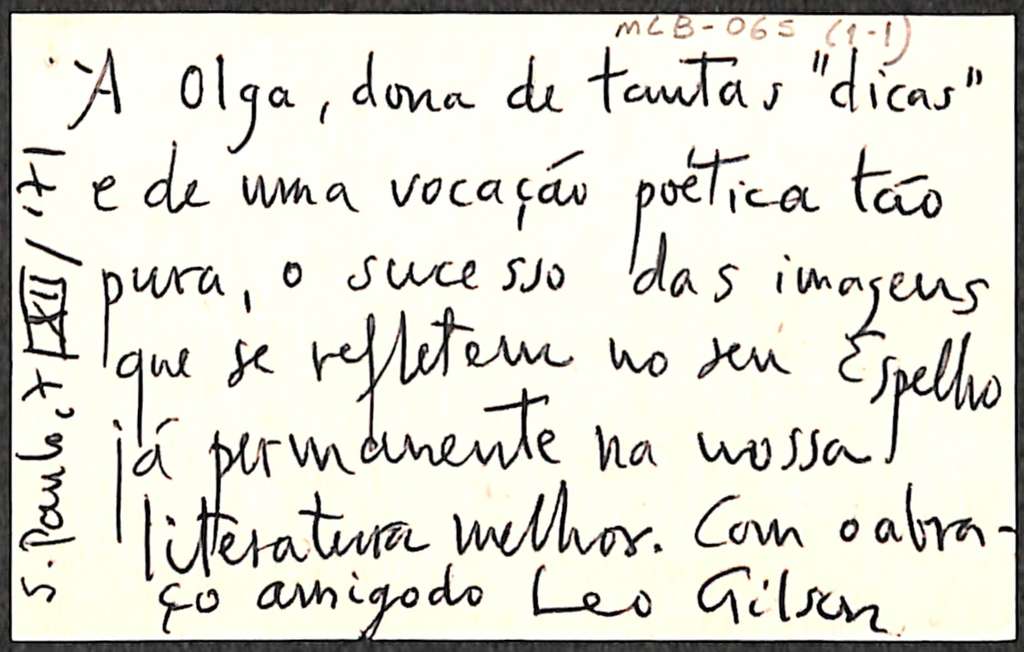 MLB-065 (1-1)
A Olga, dona de tantas "dicas"
e de uma vocação poética tão
pura, o sucesso das imagens
que se refletem no seu Espelho
já permanente na nossa
literatura melhor. Com o abra-
ço amigo do Leo Gilson
S. Paulo, 7/XII/'71